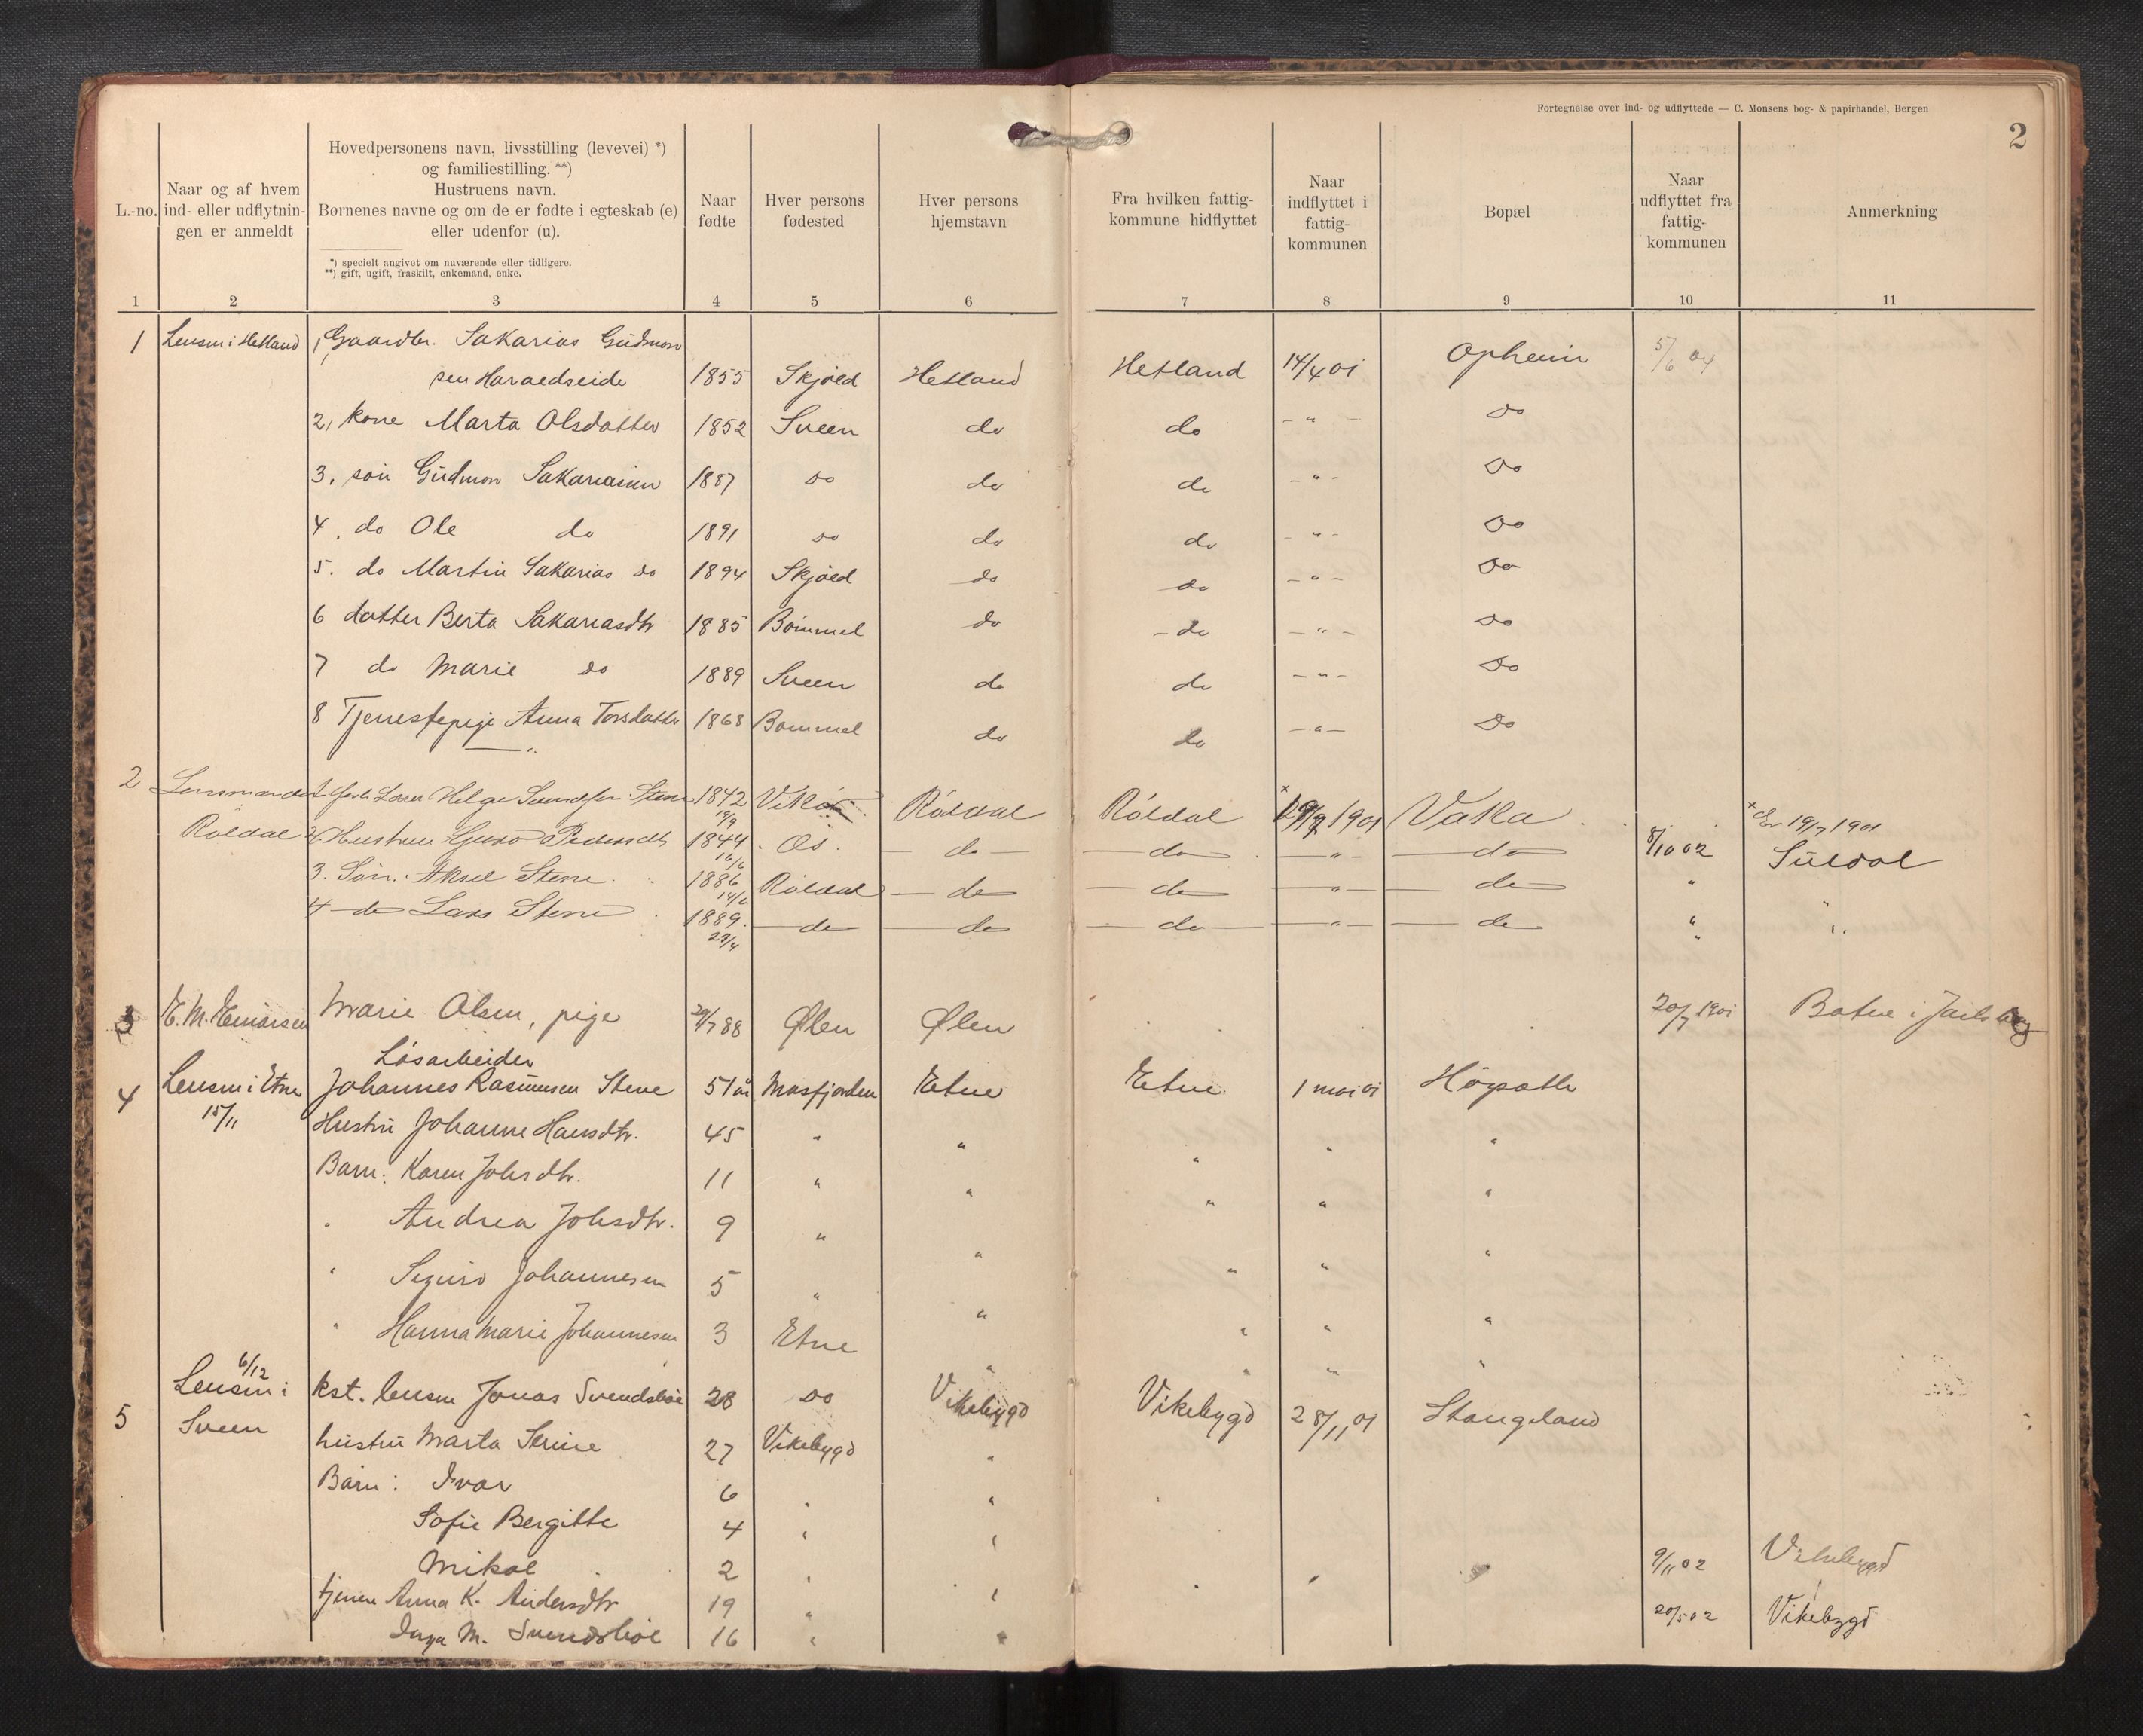 Fortegnelse over ind- og udflyttede — C. Monsens bog- & papirhandel, Bergen
2
L.-no.
Naar og af hvem
ind- eller udflytnin-
gen er anmeldt
Hovedpersonens navn, livsstilling (levevei) *)
og familiestilling. **)
Hustruens navn.
Børnenes navne og om de er fødte i egteskab (e)
eller udenfor (u).
*) specielt angivet om nuværende eller tidligere.
**) gift, ugift, fraskilt, enkemand, enke.
Naar
fødte
Hver persons
fødested
Hver persons
hjemstavn
Fra hvilken fattig-
kommune hidflyttet
Naar
indflyttet i
fattig-
kommunen
Bopæl
Naar
udflyttet fra
fattig-
kommunen
Anmerkning
1 2 3 4 5 6 7 8 9 10 11
1 Lensm i Hetland 1, Gaardbr. Sakarias Gudmon
sen Haraldseide 1855 Skjold Hetland Hetland 14/4 01 Opheim 5/6 04
2, kone Marta Olsdatter 1852 Sveen do do - " - do
3, søn Gudmon Sakariasen 1887 do do do - " - do
4. do Ole do 1891 do do do - " - do
5. do Martin Sakarias do 1894 Skjold do do - " - do
6 datter Berta Sakariasdtr 1885 Bømmel do - do - " - do
7 do Marie do 1889 Sveen do do - " - do
8 Tjenestepige Anna Torsdatter 1868 Bømmel do do - " - do
2 Lensmanden Helge Svendsen Stene 1842 Vikør Røldal Røldal 1901 Vaka × Er 19/7 1901
19/9
Røldal 2 Hustru Guro Pedersdtr 1844 Os do do " do 8/10 02 Suldal
16/6
3. Søn. Aksel Stene 1886 Røldal do do " do " "
14/6
4 do Lars Stene 1889. do do do " do " "
23/4
3 E. M. Einarsen Marie Olsen, pige 29/7 88 Ølen Ølen 20/7 1901 Botne i Jarlsberg
Løsarbeider
4 Lensm i Etne Johannes Rasmusen Stene 51 år Masfjorden Etne Etne 1 mai 01 Høgsæth
15/11
Hustru Johanne Hansdtr. 45 " " " " "
Barn: Karen Johsdtr. 11 " " " " "
" Andrea Johsdtr. 9 " " " " "
" Sigurd Johannesen 5 " " " " "
" Hanna Marie Johannesen 3 Etne " " " "
6/12
5 Lensm i kst. lensm Jonas Svendsbøe 28 do Vikebygd Vikebygd 28/11 01 Stangeland
Sveen hustru Marta Serine 27 Vikebygd "
Barn: Ivar 6 " "
Sofie Bergitte 4 " "
Mikal 2 " " 9/11 02 Vikebygd
tjener Anna K. Andersdtr 19 " " 20/5 02 Vikebygd
Inga M. Svendsbøe 16 " "